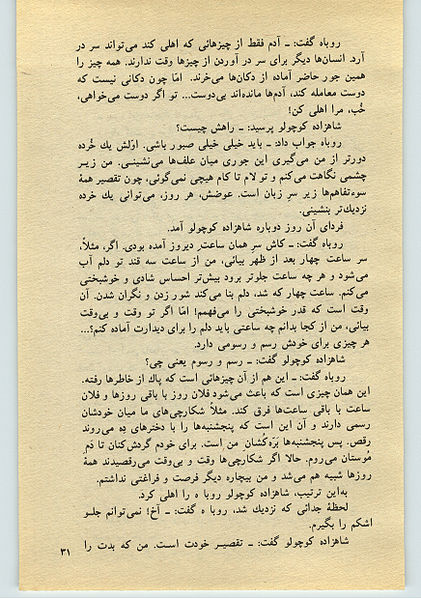 روباه گفت: ــ آدم فقط از چیزهائی که اهلی کند می‌تواند سر در
آرد. انسان‌ها دیگر برای سر در آوردن از چیزها وقت ندارند. همه چیز را
همین جور حاضر آماده از دکان‌ها می‌خرند. امّا چون دکانی نیست که
دوست معامله کند، آدم‌ها مانده‌اند بی‌دوست... تو اگر دوست می‌خواهی،
خُب، مرا اهلی کن!
شاهزاده کوچولو پرسید: ــ راهش چیست؟
روباه جواب داد: ــ باید خیلی خیلی صبور باشی. اوّلش یك خُرده
دورتر از من می‌گیری این جوری میان علف‌ها می‌نشینی. من زیـر
چشمی نگاهت می‌کنم و تو لام تا کام هیچی نمی‌گوئی، چون تقصیر همهٔ
سوءتفاهم‌ها زیر سرِ زبان است. عوضش، هر روز، می‌توانی یك خرده
نزدیك‌تر بنشینی.
فردای آن روز دوباره شاهزاده کوچولو آمد.
روباه گفت: ــ کاش سرِ همان ساعتِ دیروز آمده بودی. اگر، مثلاً،
سر ساعت چهار بعد از ظهر بیائی، من از ساعت سه قند تو دلم آب
می‌شود و هر چه ساعت جلوتر برود بیش‌تر احساس شادی و خوشبختی
می‌کنم. ساعت چهار که شد، دلم بنا می‌کند شور زدن و نگران شدن. آن
وقت است که قدر خوشبختی را می‌فهمم! امّا اگر تو وقت و بی‌وقت
بیائی، من از کجا بدانم چه ساعتی باید دلم را برای دیدارت آماده کنم؟...
هر چیزی برای خودش رسم و رسومی دارد.
شاهزاده کوچولو گفت: ــ رسم و رسوم یعنی چی؟
روباه گفت: ــ این هم از آن چیزهائی است که پاك از خاطرها رفته.
این همان چیزی است که باعث می‌شود فلان روز با باقی روزها و فلان
ساعت با باقی ساعت‌ها فرق کند. مثلاً شکارچی‌های ما میان خودشان
رسمی دارند و آن این است که پنجشنبه‌ها را با دخترهای دِه می‌روند
رقص. پس پنجشنبه‌ها بَرّه‌کُشانِ من است. برای خودم گردش‌کنان تا دَمِ
مُوستان می‌روم. حالا اگر شکارچی‌ها وقت و بی‌وقت می‌رقصیدند همهٔ
روزها شبیه هم می‌شد و من بیچاره دیگر فرصت و فراغتی نداشتم.
به‌این ترتیب، شاهزاده کوچولو روبا ه را اهلی کرد.
لحظهٔ جدائی که نزدیك شد، روبا ه گفت: ــ آخ! نمی‌توانم جلـو
اشکم را بگیرم.
شاهزاده کوچولو گفت: ــ تقصیـر خودت اسـت. من که بدت را
۳۱